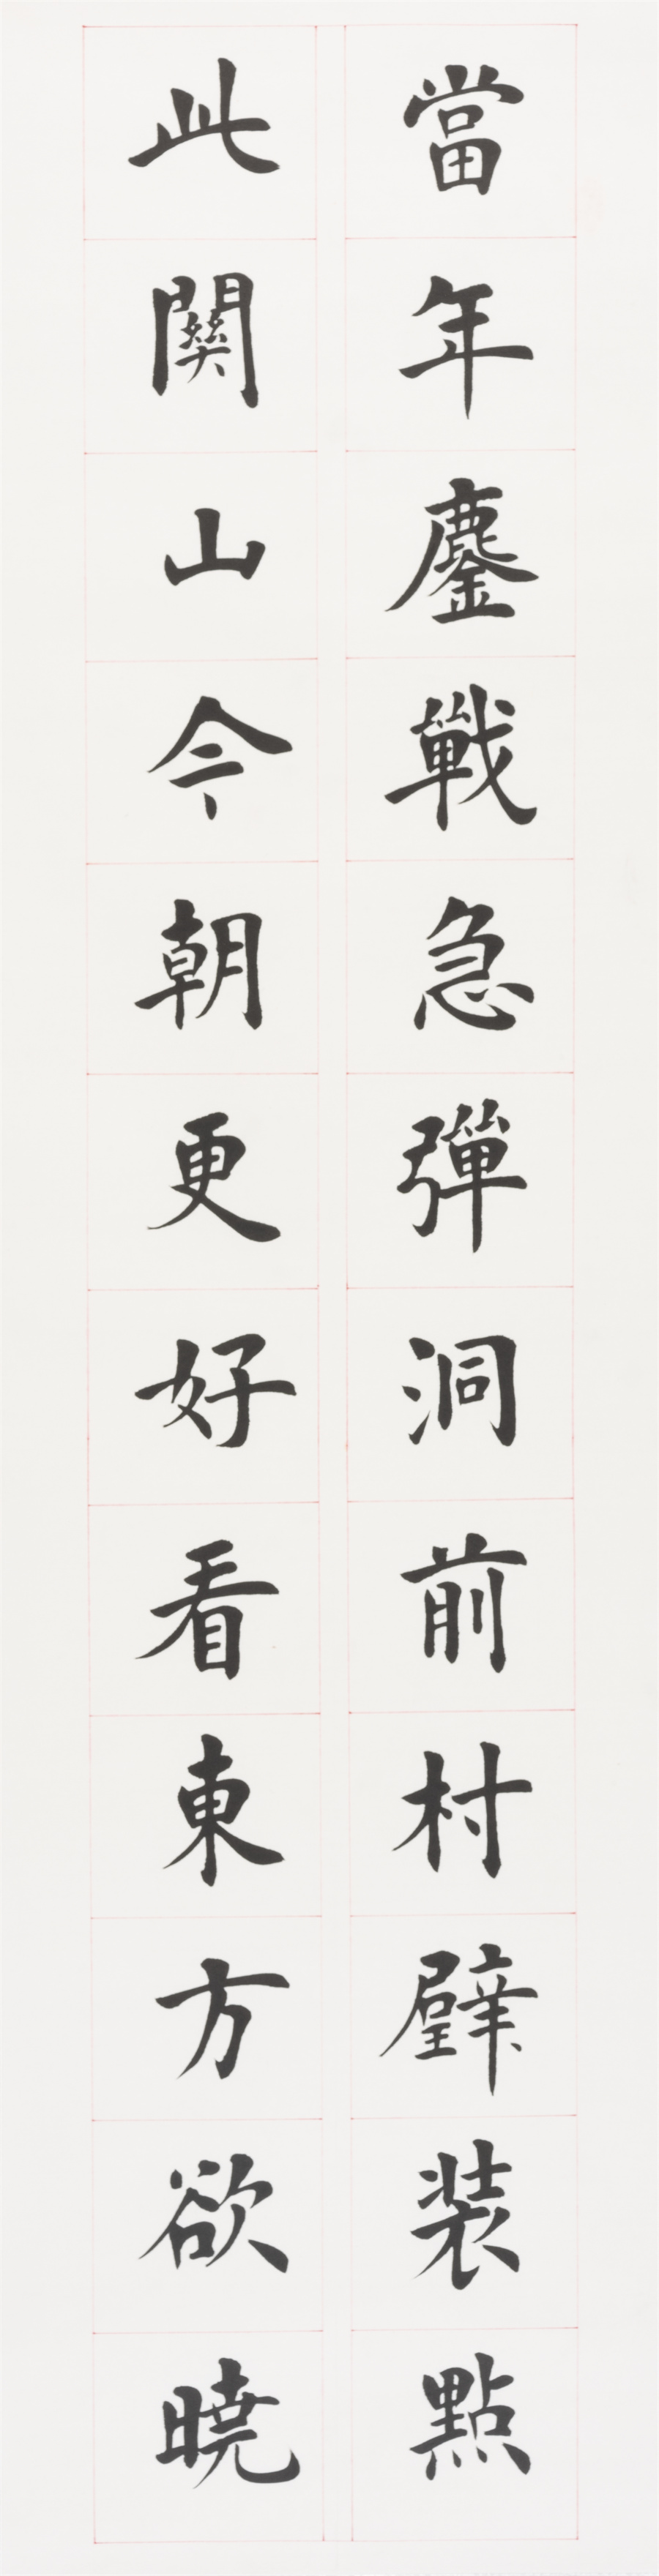 當年鏖戰急彈洞前村壁装點
此關山今朝更好看東方欲曉